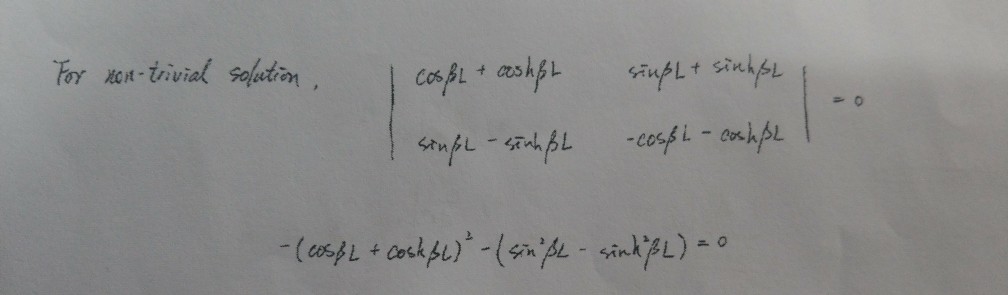 For non-trivial solution, | cosβL + coshβL sinβL + sinhβL | = 0
| sinβL - sinhβL -cosβL - coshβL |
-(cosβL + coshβL)² - (sin²βL - sinh²βL) = 0